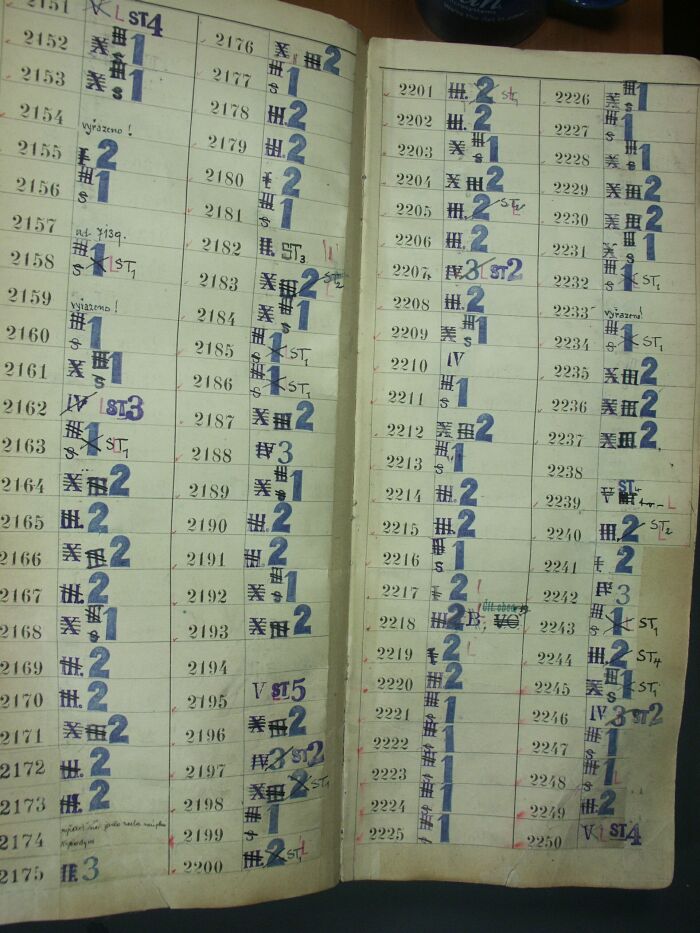 2151 V L ST4
2152 X III S 1
2153 X III S 1
2154 vyřazeno!
2155 I 2
2156 III S 1
2157
2158 III S 1 X L ST1
2159 vyřazeno!
2160 III S 1
2161 X III S 1
2162 IV L ST3
2163 III S 1 X ST1
2164 X III 2
2165 III. 2
2166 X III 2
2167 III. 2
2168 X III S 1
2169 III. 2
2170 III. 2
2171 X III 2
2172 III. 2
2173 III. 2
2174
2175 II. 3
2176 X III 2
2177 III S 1
2178 III. 2
2179 III. 2
2180 I 2
2181 III S 1
2182 II. ST3
2183 X III 2 ST2 L
2184 X III S 1
2185 III S 1 X ST1
2186 III S 1 X ST1
2187 X III 2
2188 IV 3
2189 X III S 1
2190 III. 2
2191 III. 2
2192 X III S 1
2193 X III 2
2194
2195 V ST5
2196 X III 2
2197 IV 3 ST2
2198 X III 2 ST1
2199 III S 1
2200 III. 2 X ST1 L
2201 III. 2 ST1 L
2202 III. 2
2203 X III S 1
2204 X III 2
2205 III. 2 L
2206 III. 2
2207 IV 3 L ST2
2208 III. 2
2209 X III S 1
2210 IV
2211 III S 1
2212 X III 2
2213 III S 1
2214 III. 2
2215 III. 2
2216 III S 1
2217 I 2
2218 III 2 B, VC
2219 I 2 L
2220 III. 2
2221 III S 1
2222 III S 1
2223 III S 1
2224 III S 1
2225 III S 1
2226 X III 1
2227 III S 1
2228 X III S 1
2229 X III 2
2230 X III 2
2231 X III S 1
2232 III S 1 X ST1
2233 vyřazeno!
2234 III S 1 X ST1
2235 X III 2
2236 X III 2
2237 X III 2
2238
2239 V ST L
2240 III. 2 ST2 L
2241 I 2
2242 IV 3
2243 III S 1 X ST1
2244 III. 2 ST4
2245 X III S 1 ST1
2246 IV 3 ST2
2247 III S 1
2248 III S 1 L
2249 III. 2
2250 V L ST4